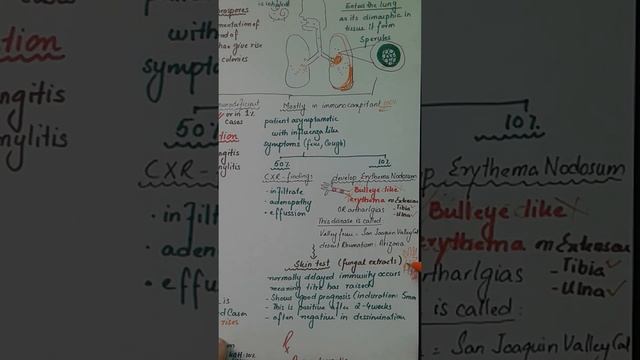 is inhaled
Enters the lung
as its dimorphic in
tissue it form
Sperules
rospores
mentation of
d of
has give rise
colonies
with
symptoms
tion
ngitis
mylitis
or in 1%
cases
Mostly in immunocompitant
patient asymptomatic
with influenza like
symptoms (fever, Cough)
50%
10%
CXR-findings
• infiltrate
• adenopathy
• effussion
develop Erythema Nodosum
Bulleye like
erythema on Extensor
OR artharlgias
- Tibia
- Ulna
This disease is called:
Valley fever - San Joaquin Valley Cal
desert Rhumatism: Arizona
Skin test (fungal extracts)
normally delayed immunity occurs
meaning titre has raised
- Shows good prognosis (induration: 5mm
- This is positive after 2-4 weeks
- often negative in dessimination
is
d Cases
rises
50%
CXR-
• infilt
• aden
• effus
10%
op Erythema Nodosum
Bulleye like
erythema on Extensor
artharlgias
- Tibia
- Ulna
is called:
= San Joaquin Valley Cal